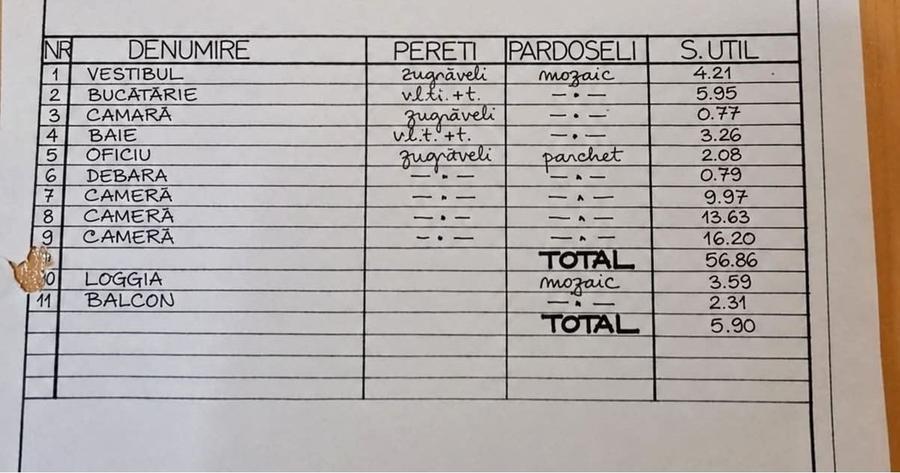 NR DENUMIRE PERETI PARDOSELI S.UTIL
1 VESTIBUL zugrăveli mozaic 4.21
2 BUCĂTĂRIE v.l.ti.+t. —·— 5.95
3 CAMARĂ zugrăveli —·— 0.77
4 BAIE v.l.t.+t. —·— 3.26
5 OFICIU zugrăveli parchet 2.08
6 DEBARA —·— —·— 0.79
7 CAMERĂ —·— —·— 9.97
8 CAMERĂ —·— —·— 13.63
9 CAMERĂ —·— —·— 16.20
TOTAL 56.86
10 LOGGIA mozaic 3.59
11 BALCON —·— 2.31
TOTAL 5.90